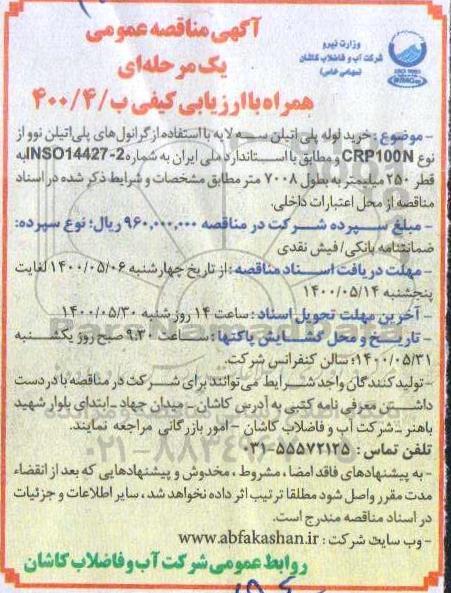 وزارت نیرو
شرکت آب و فاضلاب کاشان
(سهامی خاص)
آگهی مناقصه عمومی
یک مرحله‌ای
همراه با ارزیابی کیفی ب/۴۰۰/۴
- موضوع : خرید لوله پلی اتیلن سه لایه با استفاده از گرانول‌های پلی‌اتیلن نو از
نوع CRP100N و مطابق با استاندارد ملی ایران به شماره INSO14427-2 به
قطر ۲۵۰ میلیمتر به طول ۷۰۰۸ متر مطابق مشخصات و شرایط ذکر شده در اسناد
مناقصه از محل اعتبارات داخلی.
- مبلغ سپرده شرکت در مناقصه ۹۶۰,۰۰۰,۰۰۰ ریال؛ نوع سپرده:
ضمانتنامه بانکی/ فیش نقدی
- مهلت دریافت اسناد مناقصه : از تاریخ چهارشنبه ۱۴۰۰/۰۵/۰۶ لغایت
پنجشنبه ۱۴۰۰/۰۵/۱۴
- آخرین مهلت تحویل اسناد : ساعت ۱۴ روز شنبه ۱۴۰۰/۰۵/۳۰
- تاریخ و محل گشایش پاکتها : ساعت ۹:۳۰ صبح روز یکشنبه
۱۴۰۰/۰۵/۳۱؛ سالن کنفرانس شرکت.
- تولیدکنندگان واجد شرایط می‌توانند برای شرکت در مناقصه با در دست
داشتن معرفی نامه کتبی به آدرس کاشان - میدان جهاد - ابتدای بلوار شهید
باهنر - شرکت آب و فاضلاب کاشان - امور بازرگانی مراجعه نمایند.
تلفن تماس : ۵۵۵۷۲۱۲۵-۰۳۱
- به پیشنهادهای فاقد امضا ، مشروط ، مخدوش و پیشنهادهایی که بعد از انقضاء
مدت مقرر واصل شود مطلقا ترتیب اثر داده نخواهد شد ، سایر اطلاعات و جزئیات
در اسناد مناقصه مندرج است.
- وب سایت شرکت : www.abfakashan.ir
روابط عمومی شرکت آب و فاضلاب کاشان